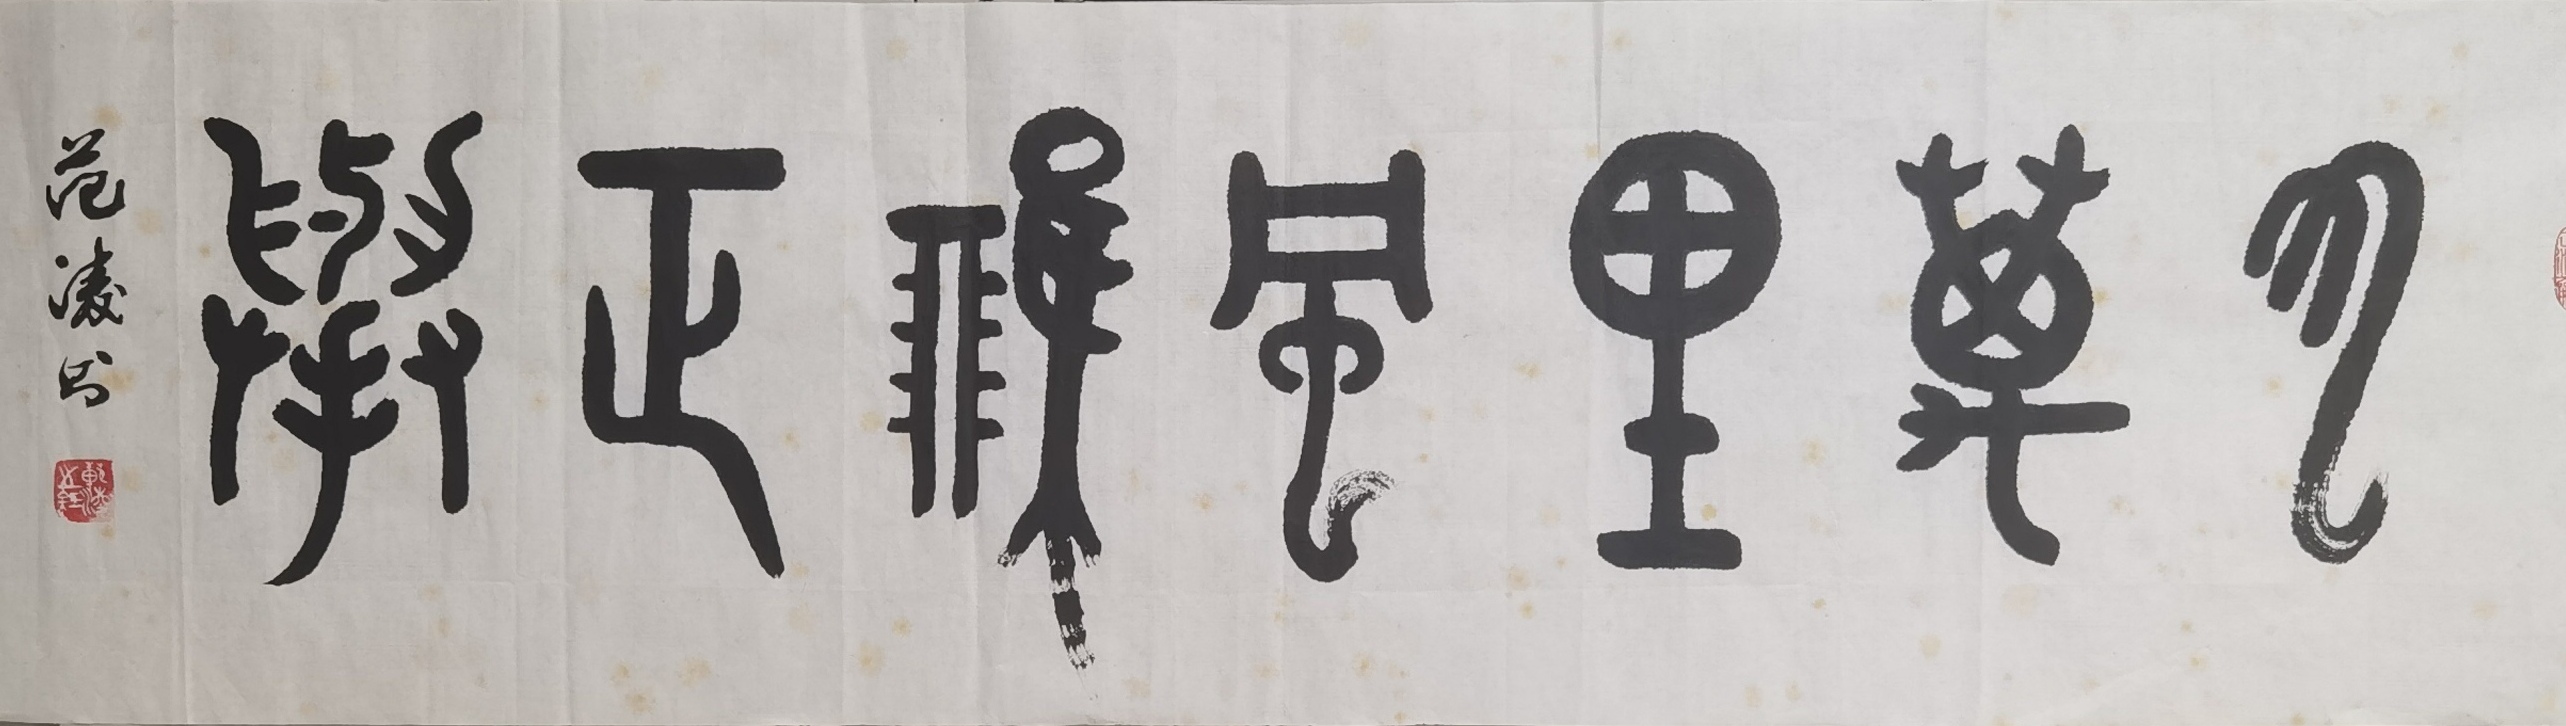 九萬里風鵬正舉
范凌书